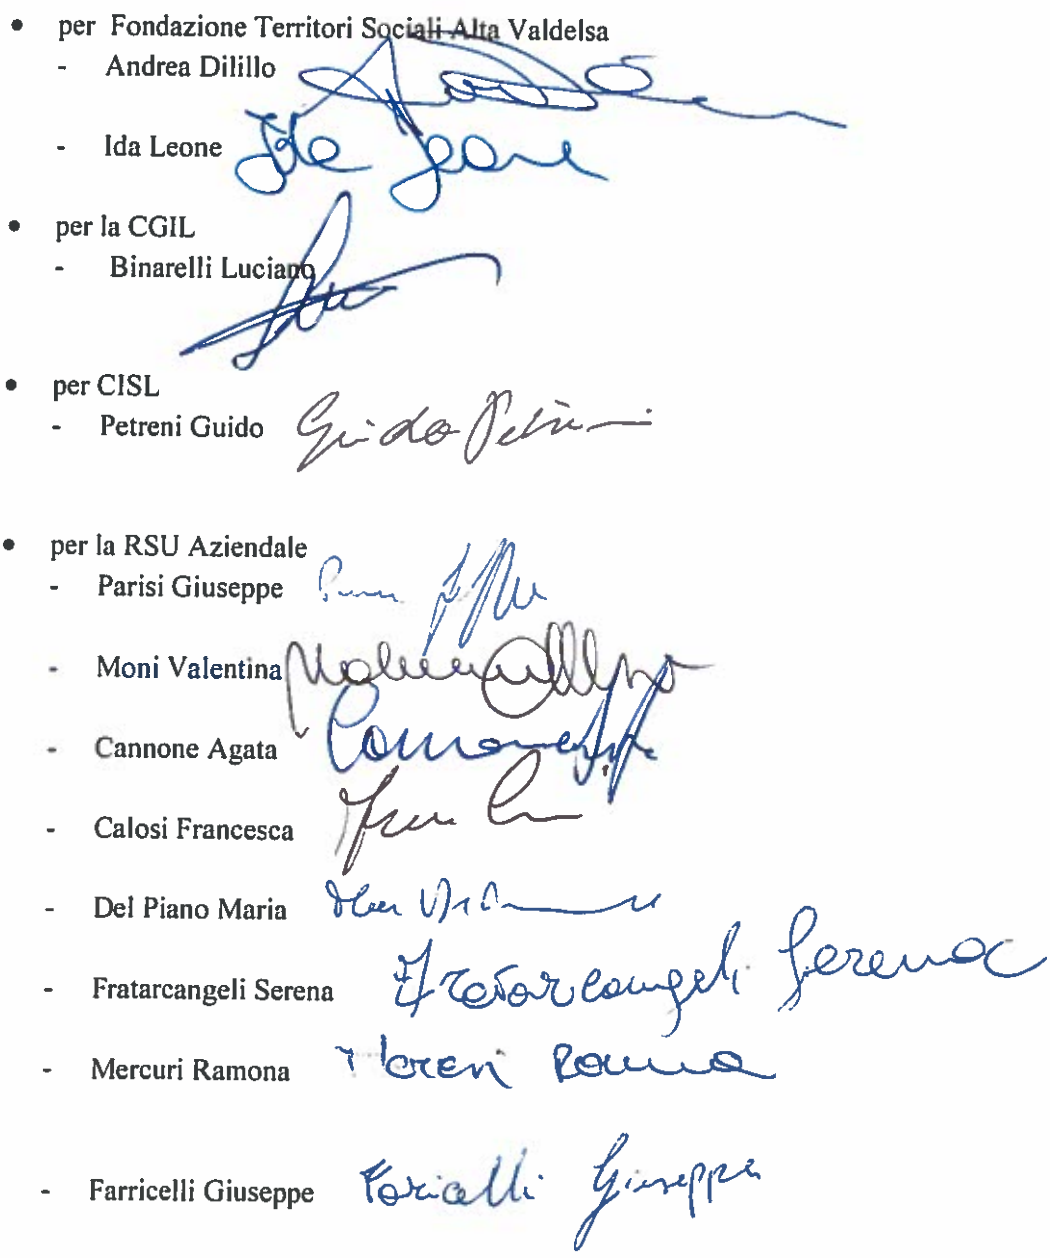 • per Fondazione Territori Sociali Alta Valdelsa
- Andrea Dilillo
- Ida Leone Ida Leone
• per la CGIL
- Binarelli Luciano
• per CISL
- Petreni Guido Guido Petreni
• per la RSU Aziendale
- Parisi Giuseppe
- Moni Valentina
- Cannone Agata
- Calosi Francesca
- Del Piano Maria
- Fratarcangeli Serena Fratarcangeli Serena
- Mercuri Ramona
- Farricelli Giuseppe Giuseppe